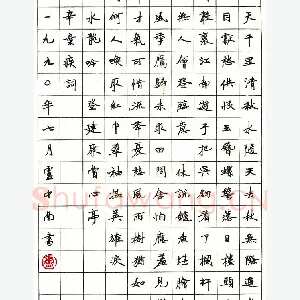 天千里清秋水隨天去秋無際遙
目獻愁供恨玉簪螺髻落日樓頭
鴻聲裏江南遊子把吳鉤看了欄杆
無人會登臨意休說鱸魚堪膾
風季鷹歸未求田問舍怕應羞見
才氣可惜流年憂愁風雨樹猶如
何人喚取紅巾翠袖搵英雄淚
水龍吟 登建康賞心亭
辛棄疾詞
一九九〇年七月雲中南書